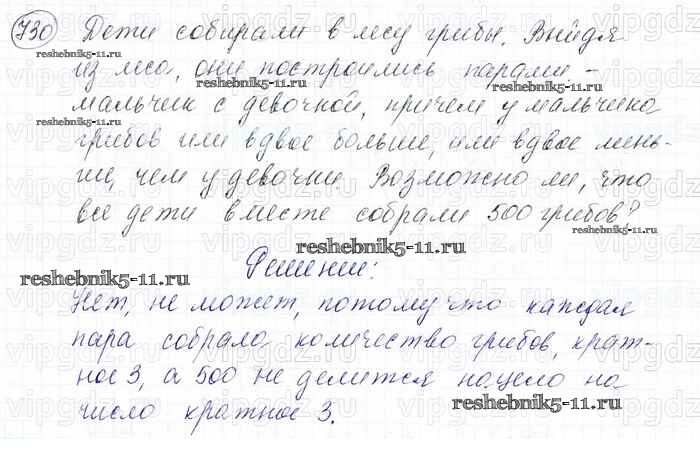 730 Дети собирали в лесу грибы. Выйдя
reshebnik5-11.ru
из леса, они построились парами -
reshebnik5-11.ru
reshebnik5-11.ru
мальчик с девочкой, причем у мальчика
reshebnik5-11.ru
грибов или вдвое больше, или вдвое мень-
ше, чем у девочки. Возможно ли, что
все дети вместе собрали 500 грибов?
reshebnik5-11.ru
Решение:
reshebnik5-11.ru
Нет, не может, потому что каждая
пара собрала количество грибов, крат-
ное 3, а 500 не делится нацело на
число кратное 3.
reshebnik5-11.ru